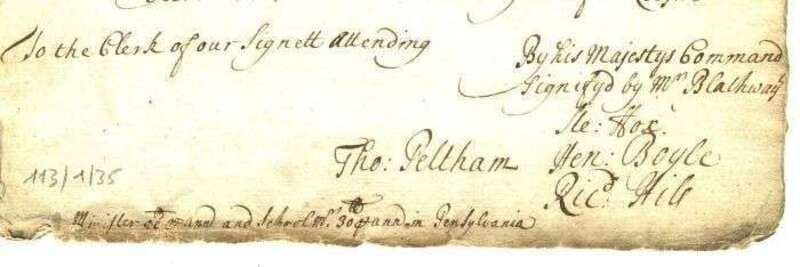 To the Clerk of our Signett attending
By his Majestys Command
Signifyd by Mr Blathwayt
Ste: Fox.
Tho: Pelham Hen: Boyle
Ricd. Hill
113/1/35
Minister ann and School Mr. 30 ann in Pensylvania